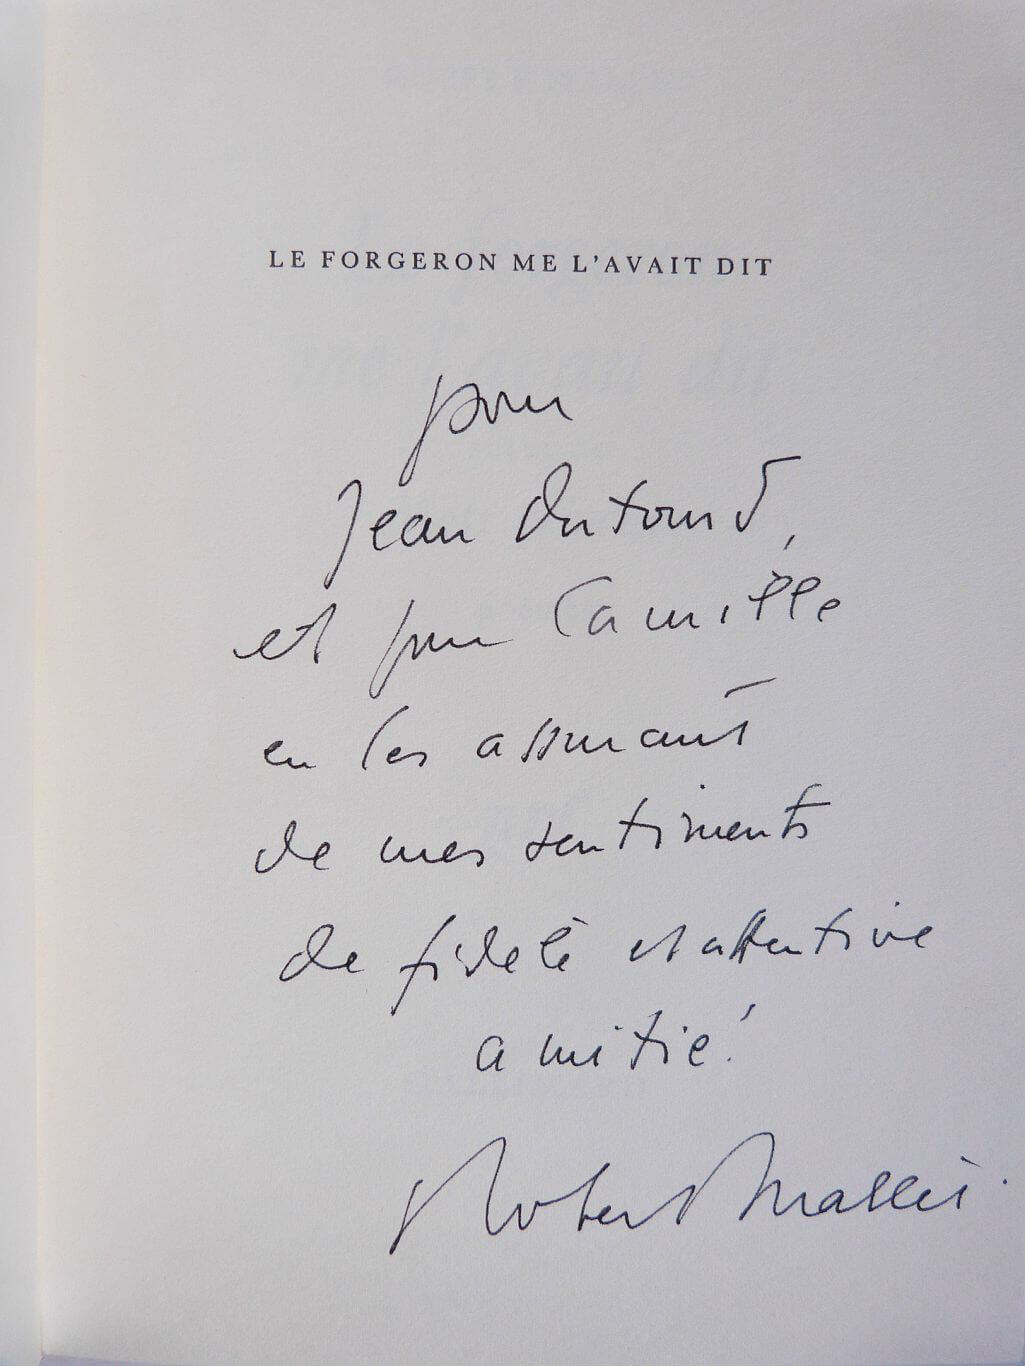 LE FORGERON ME L'AVAIT DIT
pour
Jean Dutourd,
et pour Camille
en les assurant
de mes sentiments
de fidèle et attentive
amitié.
Robert Mallet.